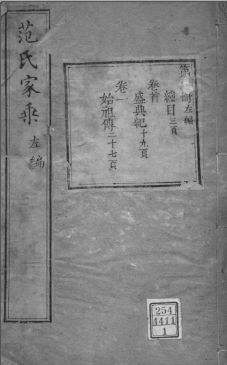 范氏家乘 左編
第 冊左編
總目三頁
卷首
盛典紀十九頁
卷一
始祖傳二十七頁
254
4411
1